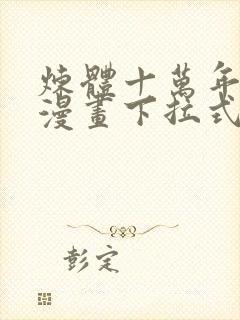 煉體十萬年
漫畫下拉式
彭定